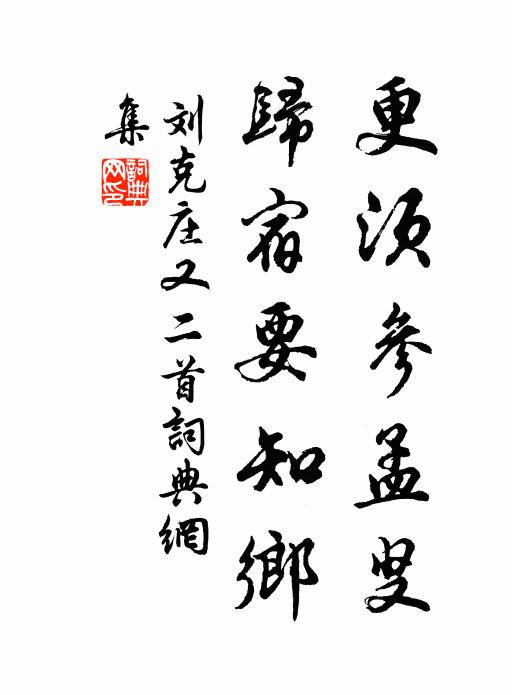 更須參孟叟
歸宿要知鄉
刘克庄又二首詞典網
集
詞典
网印